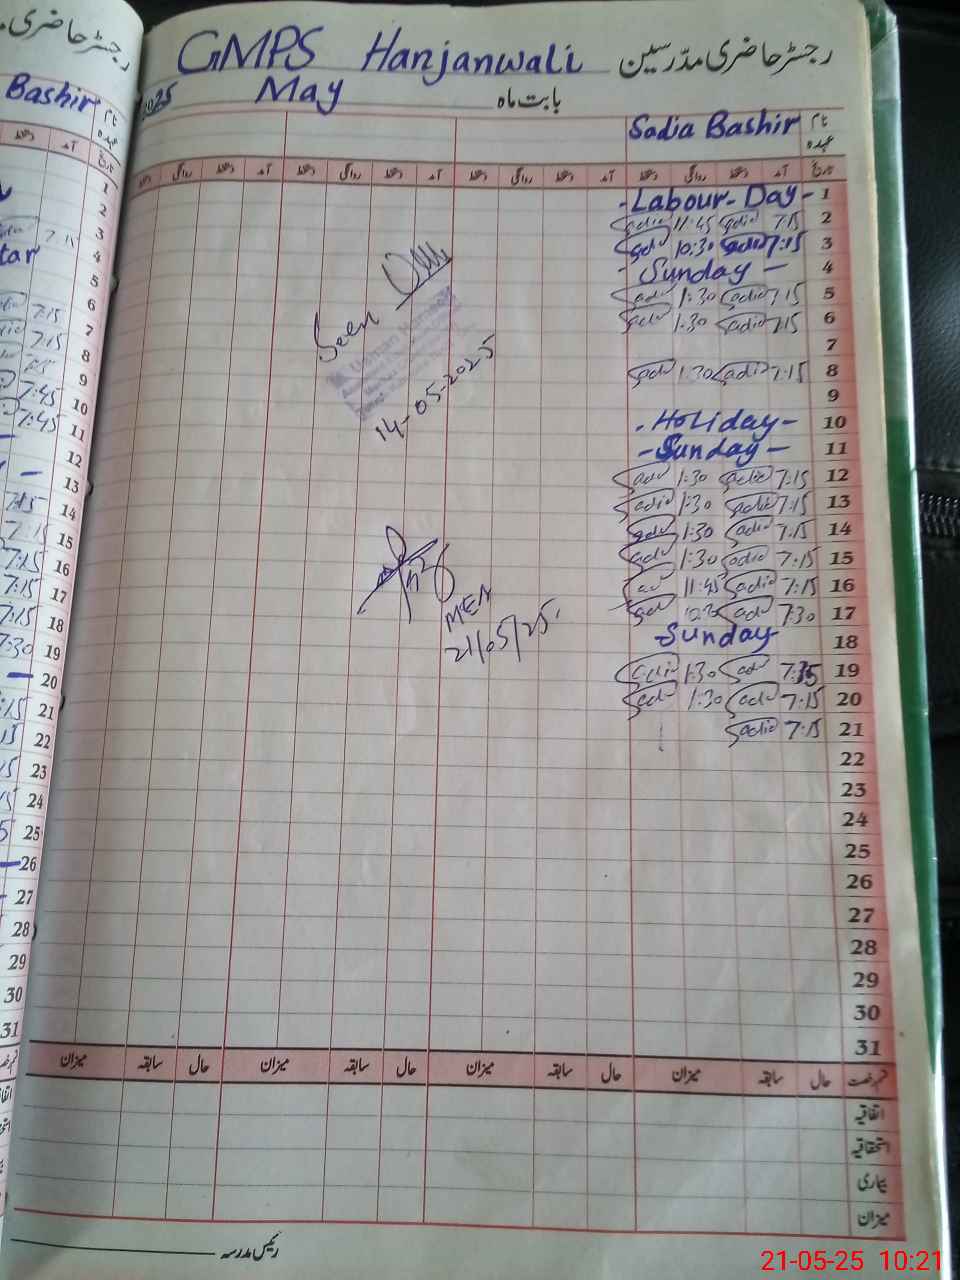 رجسٹر حاضری مدرسین GMPS Hanjanwali
بابت ماہ May 2025
نام Sadia Bashir
عہدہ
تاریخ آمد دستخط روانگی دستخط آمد دستخط روانگی دستخط آمد دستخط روانگی دستخط آمد دستخط روانگی
1 - Labour - Day -
2 7:15 Sadia 11:45 Sadia
3 7:15 Sadia 10:30
4 - Sunday -
5 7:15 Sadia 1:30
6 7:15 Sadia 1:30
7
8 7:15 Sadia 1:30
9
10 - Holiday -
11 - Sunday -
12 7:15 Sadia 1:30
13 7:15 Sadia 1:30 Sadia
14 7:15 1:30
15 7:15 Sadia 1:30
16 7:15 Sadia 11:45
17 7:30
18 Sunday
19 1:30 Sadia
20 7:15 1:30
21 7:15 Sadia
22
23
24
25
26
27
28
29
30
31
Seen
14-05-2025
MEA
21/05/25
نمبر رخصت حال سابقہ میزان حال سابقہ میزان حال سابقہ میزان حال سابقہ میزان
اتفاقیہ
استحقاقیہ
بیماری
میزان
رئیس مدرسہ
رجسٹر حاضری
Bashir نام
عہدہ
تاریخ آمد
1
2
3 7:15
4 tar
5
6 7:15
7 7:15
8
9 7:45
10 7:45
11
12
13
14 7:15
15 7:15
16 7:15
17 7:15
18 7:15
19 7:30
20
21 :15
22
23
24
25
26
27
28
29
30
31
21-05-25 10:21